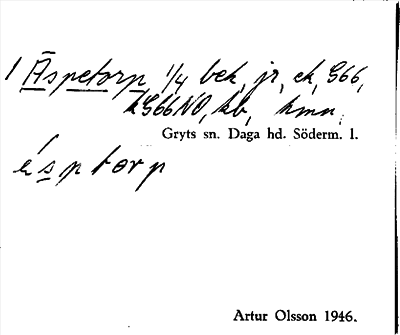 1 Äspetorp 1/4 bek, jr, ek, G66,
kG66NO, kb, hmn.
Gryts sn. Daga hd. Söderm. l.
ésptorp
Artur Olsson 1946.